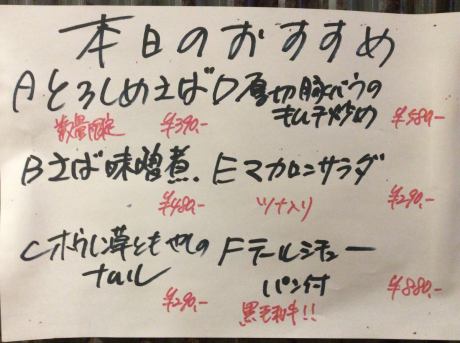 本日のおすすめ
Aとろしめさば
数量限定 ¥390.-
Bさば味噌煮.
¥480.-
Cホウレン草ともやしの
ナムル
¥290.-
D厚切豚バラの
キムチ炒め ¥580.-
Eマカロニサラダ
ツナ入り ¥290.-
Fテールシチュー
パン付 ¥880.-
黒毛和牛!!